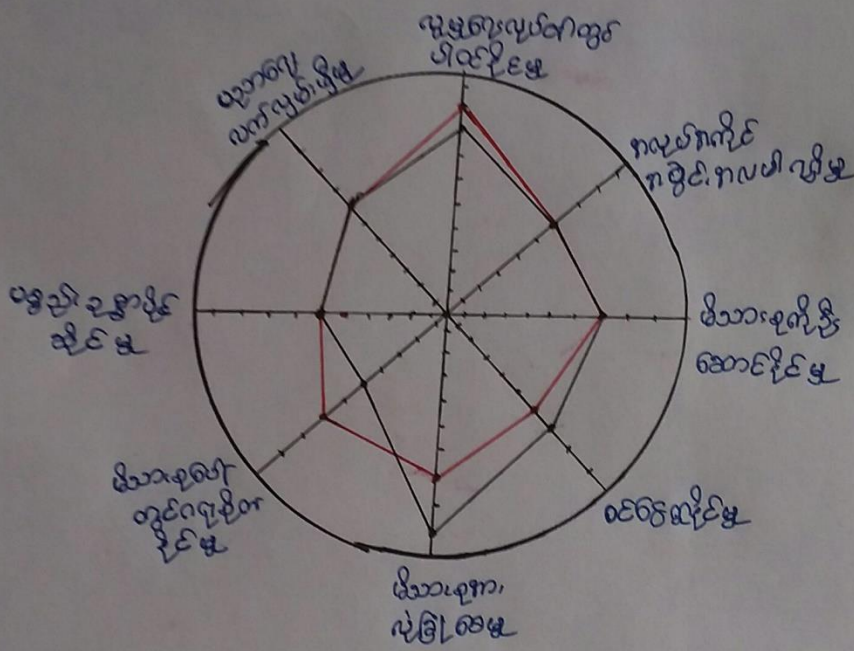 လူမှုရေးလုပ်ငန်းတွင်
ပါဝင်နိုင်မှု
အလုပ်အကိုင်
အခွင့်အလမ်းရရှိမှု
မိသားစုကိုဦး
ဆောင်နိုင်မှု
ဝင်ငွေရှာနိုင်မှု
မိသားစုအား
လုံခြုံစေမှု
မိသားစုပေါ်
တွင်ဂရုစိုက်
နိုင်မှု
ပစ္စည်းဥစ္စာပိုင်
ဆိုင်မှု
ပညာရေး
လက်လှမ်းမှီမှု